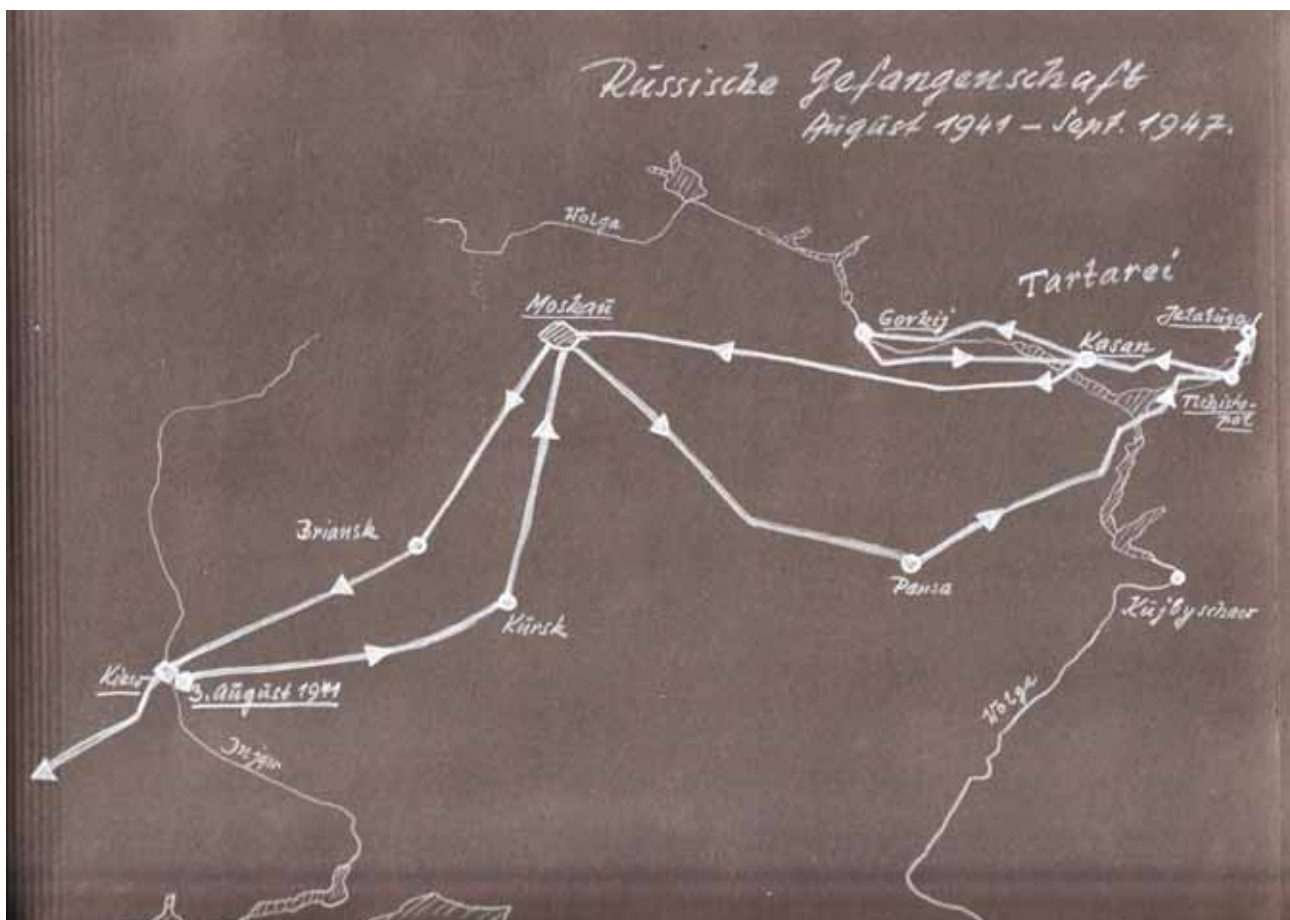 Russische Gefangenschaft
August 1941 – Sept. 1947.
Wolga
Tartarei
Moskau
Gorkij
Kasan
Jelabuga
Tschisto-
pol
Briansk
Kursk
Pansa
Kujbyschew
Kiew
3. August 1941
Wolga
Dnjepr